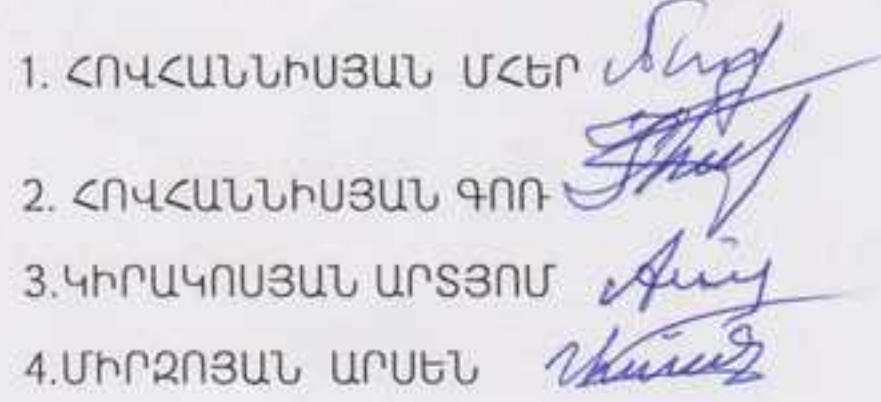 1. ՀՈՎՀԱՆՆԻՍՅԱՆ ՄՀԵՐ
2. ՀՈՎՀԱՆՆԻՍՅԱՆ ԳՈՌ
3.ԿԻՐԱԿՈՍՅԱՆ ԱՐՏՅՈՄ
4.ՄԻՐԶՈՅԱՆ ԱՐՍԵՆ